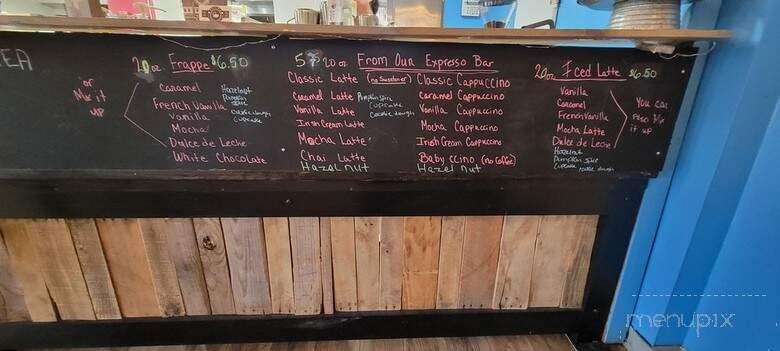 EA
20 oz Frappe $6.50
or
Mix it
up
Caramel
French Vanilla
Vanilla
Mocha
Dulce de Leche
White Chocolate
Hazelnut
Pumpkin
Spice
Cookie dough
Cupcake
20 oz From Our Expresso Bar
Classic Latte (no Sweetener)
Caramel Latte
Vanilla Latte
Irish Cream Latte
Mocha Latte
Chai Latte
Hazel nut
Pumpkin Spice
Cupcake
Cookie dough
Classic Cappuccino
Caramel Cappuccino
Vanilla Cappuccino
Mocha Cappuccino
Irish Cream Cappuccino
Baby ccino (no Coffee)
Hazel nut
20 oz Iced Latte $6.50
Vanilla
Caramel
French Vanilla
Mocha Latte
Dulce de Leche
Hazelnut
Pumpkin Spice
Cupcake
Cookie dough
You can
also Mix
it up
menupix